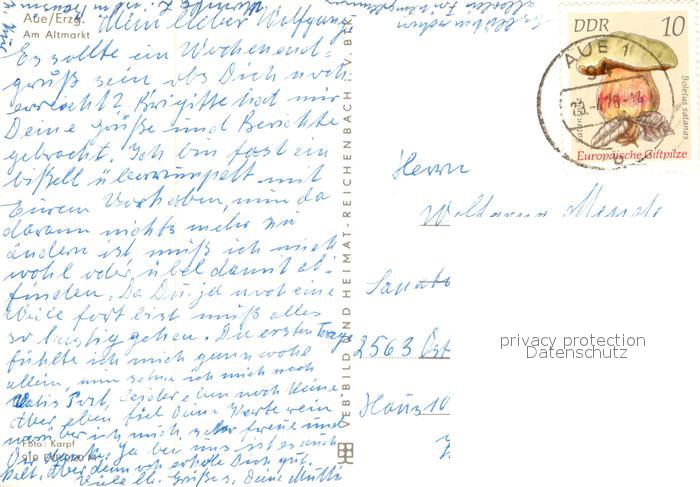 Aue/Erzg.
Am Altmarkt
Mein lieber Wolfgang
Es sollte ein Wochenend-
gruß sein, obs Dich noch
erreicht? Brigitte hat mir
Deine Grüße und Berichte
gebracht. Ich bin fast ein
bißell überrumpelt mit
Eurem Vorhaben, nun da
daran nichts mehr zu
ändern ist, muß ich mich
wohl oder übel damit ab-
finden. Da Du ja noch eine
Weile fort bist muß alles
so hastig gehen. Die ersten Tage
fühlte ich mich ganz wohl
allein, nun sehne ich mich nach
Post, leider eben noch keine
Aber eben fiel Deine Karte rein
worüber ich mich sehr freue und
Dir danke. Ja bei uns ist es auch
kalt. Aber denn noch erhole Dich gut.
Viele lb. Grüße, Deine Mutti
Foto: Karpf
VEB BILD UND HEIMAT-REICHENBACH I. V. B
DDR 10
Boletus satanas
Europäische Giftpilze
AUE 1
94
Herrn
Sanato
2563 Ost
Haus 10
privacy protection
Datenschutz